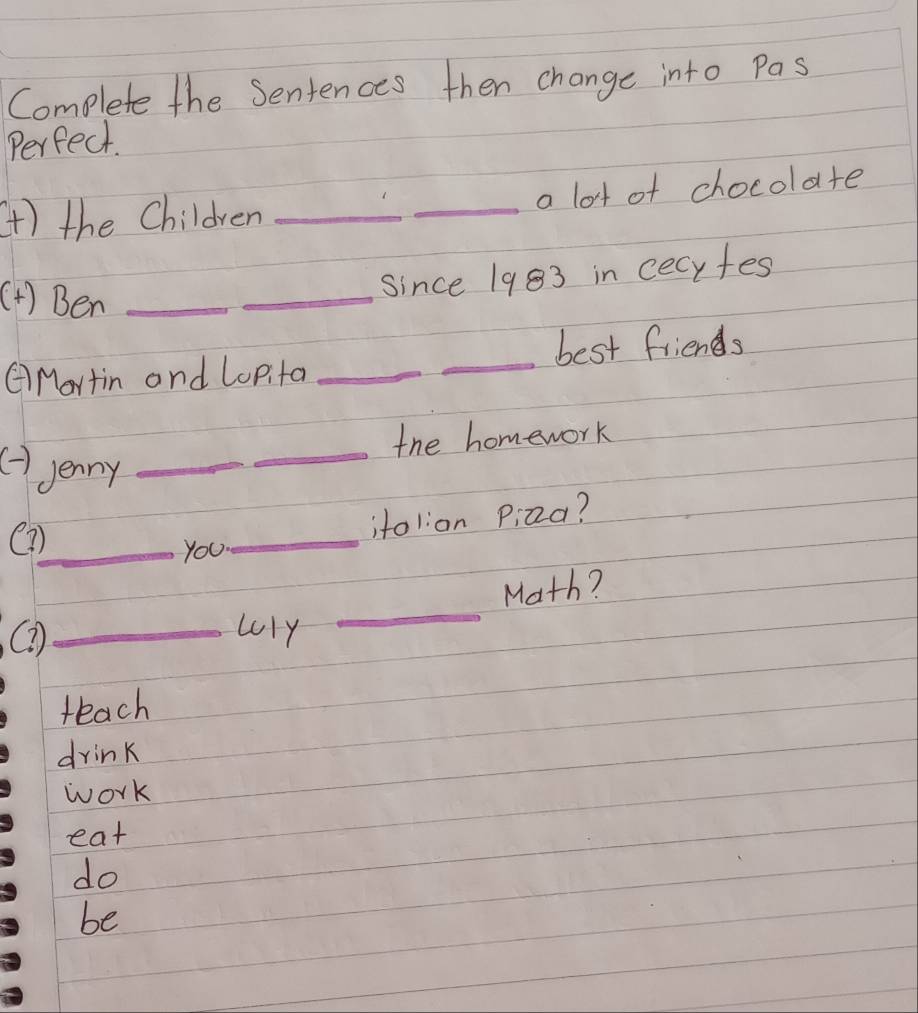 Complete the Sentences then change into Pas
Perfect.
(+) the Children ______ ______ a lot of chocolate
(+) Ben ______ ______ since 1983 in cecytes
(-) Martin and Lupita ______ ______ best friends
(-) Jenny ______ ______ the homework
(?) ______ you ______ italian Pizza?
(?) ______ Luly ______ Math?
teach
drink
work
eat
do
be